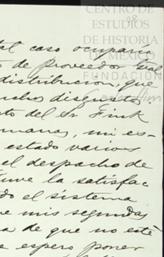 CENTRO DE
ESTUDIOS
DE HISTORIA
DE MÉXICO
FUNDACIÓN
tal caso ocuparia
de proveedor
distribucion que
mucho disgusto
to del Sr Fink
manas, mi es-
estado varios
el despacho de
tuve la satisfac-
do el sistema
e mis segundas
a de que no esté
e espero poner